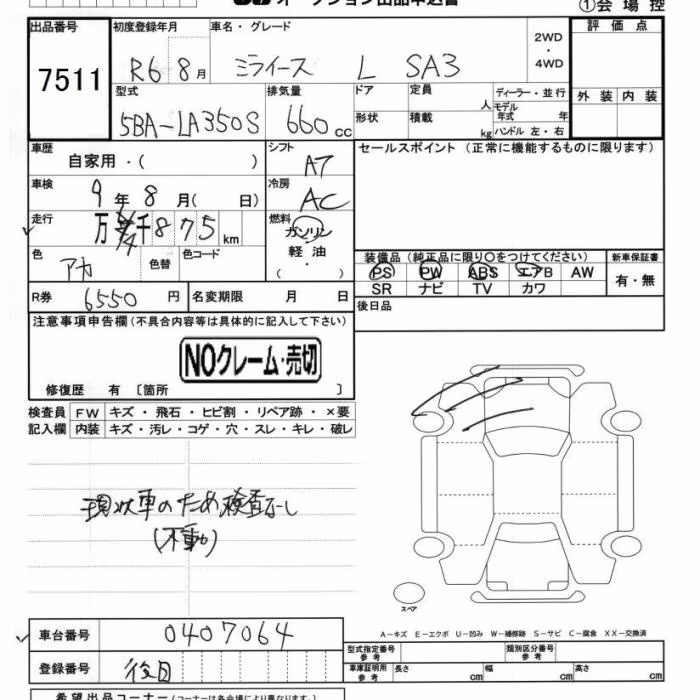 オークション出品申込書 ①会場控
出品番号 初度登録年月 車名・グレード 2WD・4WD 評価点
7511 R6 8月 ミライース L SA3
型式 排気量 ドア 定員 人 ディーラー・並行 外装 内装
5BA-LA350S 660cc 形状 積載 kg モデル年式 年 ハンドル 左・右
車歴 自家用・( ) シフト AT セールスポイント(正常に機能するものに限ります)
車検 9年8月( 日) 冷房 AC
走行 万 4千875km 燃料 ガソリン 軽油 ( ・ )
色 アカ 色替 色コード
装備品(純正品に限り○をつけてください) 新車保証書
PS PW ABS エアB AW 有・無
SR ナビ TV カワ
R券 6550円 名変期限 月 日 後日品
注意事項申告欄(不具合内容等は具体的に記入して下さい)
NOクレーム・売切
修復歴 有 〔箇所 〕
検査員 FW キズ・飛石・ヒビ割・リペア跡・×要
記入欄 内装 キズ・汚レ・コゲ・穴・スレ・キレ・破レ
現状車のため検査なし
(不動)
スペア
A-キズ E-エクボ U-凹み W-補修跡 S-サビ C-腐食 XX-交換済
車台番号 0407064
型式指定番号参考 類別区分番号参考
登録番号 後日
車庫証明用参考 長さ cm 幅 cm 高さ cm
希望出品コーナー(コーナーは各会場により異なります。)